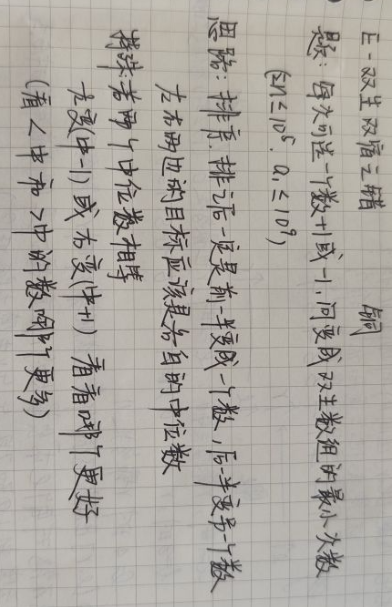 E-双生双宿之错 铜
题:每次可选一个数+1或-1.问变成双生数组的最小次数
(Σn≤10⁵. aᵢ≤10⁹)
思路:排序.排之后一定是前一半变成一个数,后一半变另一个数
左右两边的目标应该是各自的中位数
特殊:若两个中位数相等
左变(中-1)或右变(中+1) 看看哪个更好
(看<中和>中的数哪个更多)